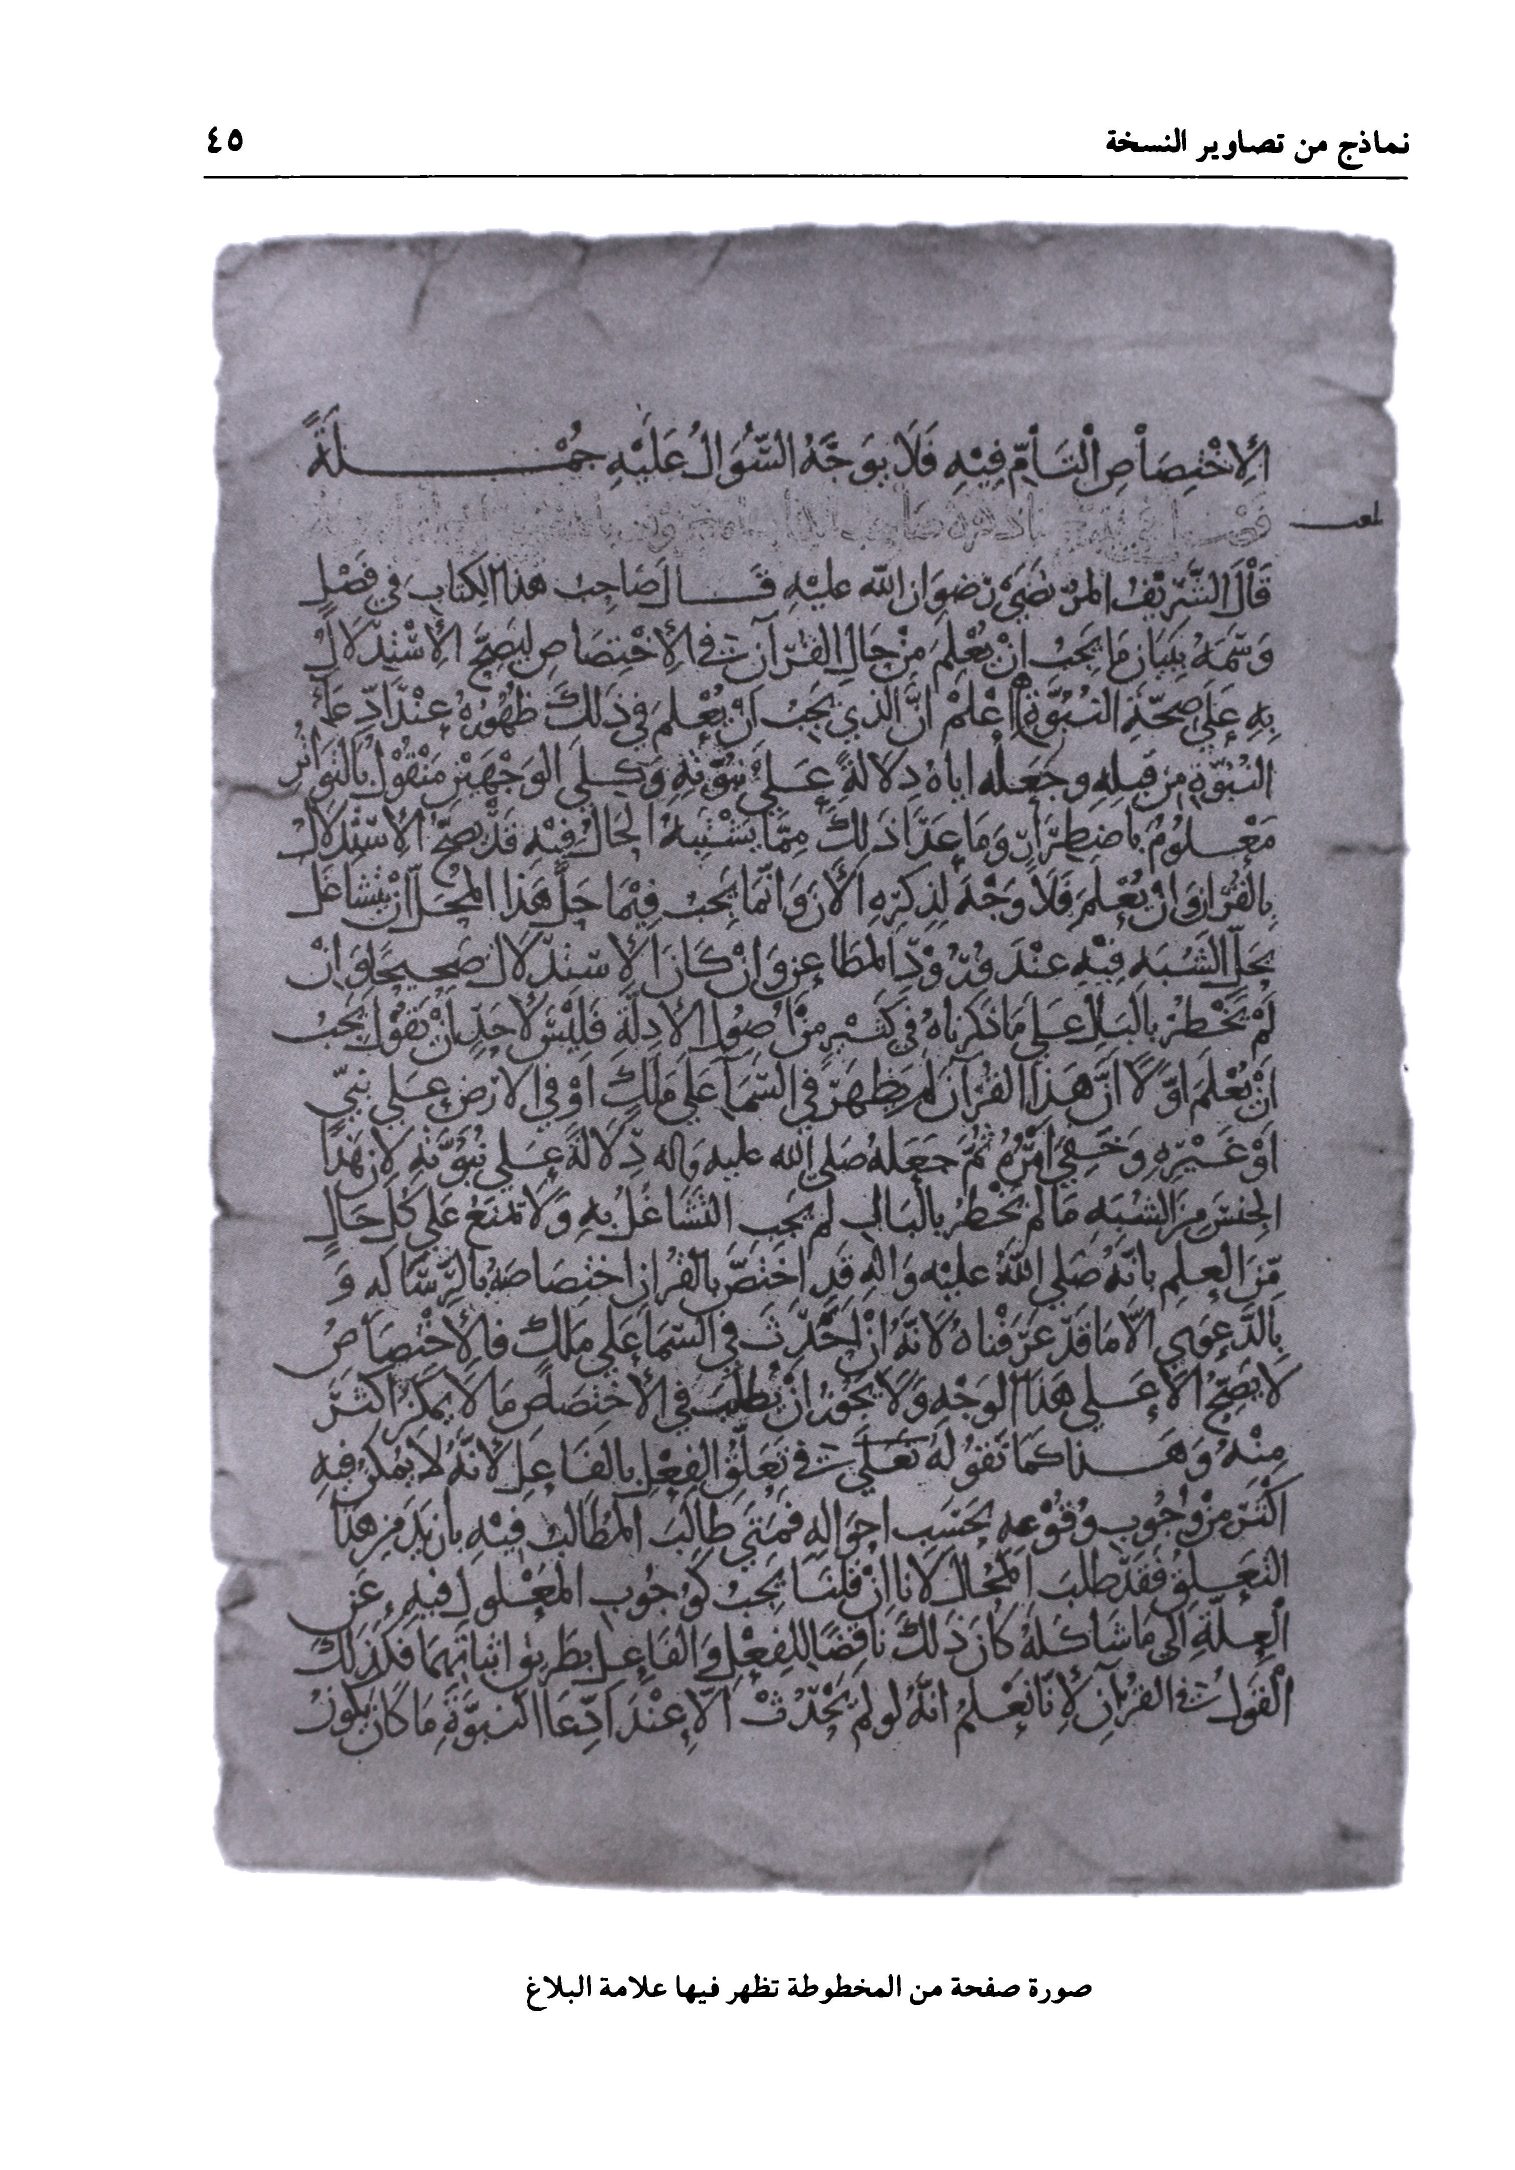 نماذج من تصاوير النسخة
٤٥
الاِخْتِصَاصِ التَامِّ فِيْهِ فَلَا يَوَجَّهُ السُّؤَالُ عَلَيْهِ جُمْلَةً
فصل في
قَالَ الشَّرِيْفُ المرْتَضَى رضوَان الله عليْهِ قَالَ صَاحِبُ هذا الكِتَابِ في فَصْلٍ
وَسَمَهُ بِبَيَان مَا يَجبُ انْ يُعْلَمَ مِنْ حَالِ القُرْآن في الاِخْتِصَاصِ لِيَصِحَّ الاِسْتِدْلَالُ
بِهِ عَلَى صِحَّةِ النُبُوَّةِ اعْلَمْ انَّ الذي يَجبُ أَنْ يُعْلَمَ في ذَلكَ ظُهُورُهُ عِنْدَ ادّعَاءِ
النُبُوَّةِ مِن قبلِهِ وجَعَلَه اياهُ دلَالَةً عَلَى نبُوَّتِهِ وَكِلَى الوَجْهَيْنِ مَنْقُوْل بالتوَاتُرِ
مَعْلُومٌ باضطِرَارٍ وَمَا عَدَا ذَلِكَ مِمَّا يَشْتَبهُ الحَالُ فِيْهِ قَدْ يَصِحُّ الاسْتِدْلَالُ
بالقُرْانِ وَانْ يُعْلَمَ فَلَا وَجْهَ لِذِكرِهِ الأَن وَانّمَا يَجبُ فِيْمَا حَلَّ هَذا المحَلّ انْ يَتَشَاغَلَ
بحَلِّ الشُبَهِ فِيْهِ عِنْدَ وُرُوْدِ المَطَاعِنِ وَانْ كَانَ الاِسْتدلَالُ صَحِيحًا وَانْ
لَمْ يَخْطرْ بالبَالِ عَلى مَا ذكرناهُ في كَثيْرٍ مِنْ اُصُوْل الأدِلَّةِ فَلَيْسَ لأَحَدٍ انْ يَقُوْلَ يَجبُ
اَنْ يُعْلَمَ اوّلًا انَّ هَذا القُرْآن لَم يَظهَرْ في السَّمَآ عَلَى مَلَكٍ اوْ في الارْضِ عَلى نبيٍّ
اوْ غَيْرِهِ وَخَفِيَ امْرُهُ ثُمَّ جَعَلَهُ صَلى الله عليه واله دِلَالَةً عَلى نُبُوَّتِهِ لانّ هَذَا
الجنسَ مِنَ الشُبَهِ مَا لم يَخْطرْ بالبَالِ لم يَجب التَّشَاغلُ بهِ وَلَا تمنَعُ عَلى كُلِّ حَالٍ
مِّنَ العِلمِ بانّهُ صَلى اللهُ عليْه وَالهِ قدِ اخْتَصَّ بالقُرانِ اختصَاصَهُ بالرِّسَالَه وَ
بالدَّعوَى الّا مَا قَدْ عَرَفْناهُ لانَّهُ انْ اُحْدِثَ في السَّمَا عَلى مَلكٍ فَالاخْتِصَاصُ
لَا يَصِحُّ الا عَلى هَذا الوَجْهِ وَلَا يَجوزُ انْ يُطلَبَ في الاِخْتِصَاصِ مَا لا يمكنُ اكثَرُ
مِنْهُ وَهَذا كمَا نَقُولهُ في تَعَلُّقِ الفِعْلِ بالفَاعِلِ لأنّهُ لَا يُمكنُ فيهِ
اكثَرُ مِنْ وُجُوبِ وُقُوْعِهِ بحَسَبِ احوَالِهِ فمَتَى طَالَبَ المطَالبُ فِيْهِ بازيَدَ مِنْ هذا
التَعَلُّقِ فَقَدْ طَلَبَ المحَالَ لانا انْ قُلنَا يَجبُ كوُجُوب المَعْلولِ فيهِ عَنِ
العِلّةِ الى مَا شَاكَلَهُ كَانَ ذَلكَ ناقِضًا للفِعْلِ وَالفَاعِل بطَريق اثبَاتهمَا فكَذلكَ
القوْلُ في القرْآنِ لِانّا نَعْلمُ انهُ لو لمْ يَحْدُثْ الّا عِنْدَ ادّعَا النبُوَّةِ مَا كَانَ يكونُ
صورة صفحة من المخطوطة تظهر فيها علامة البلاغ